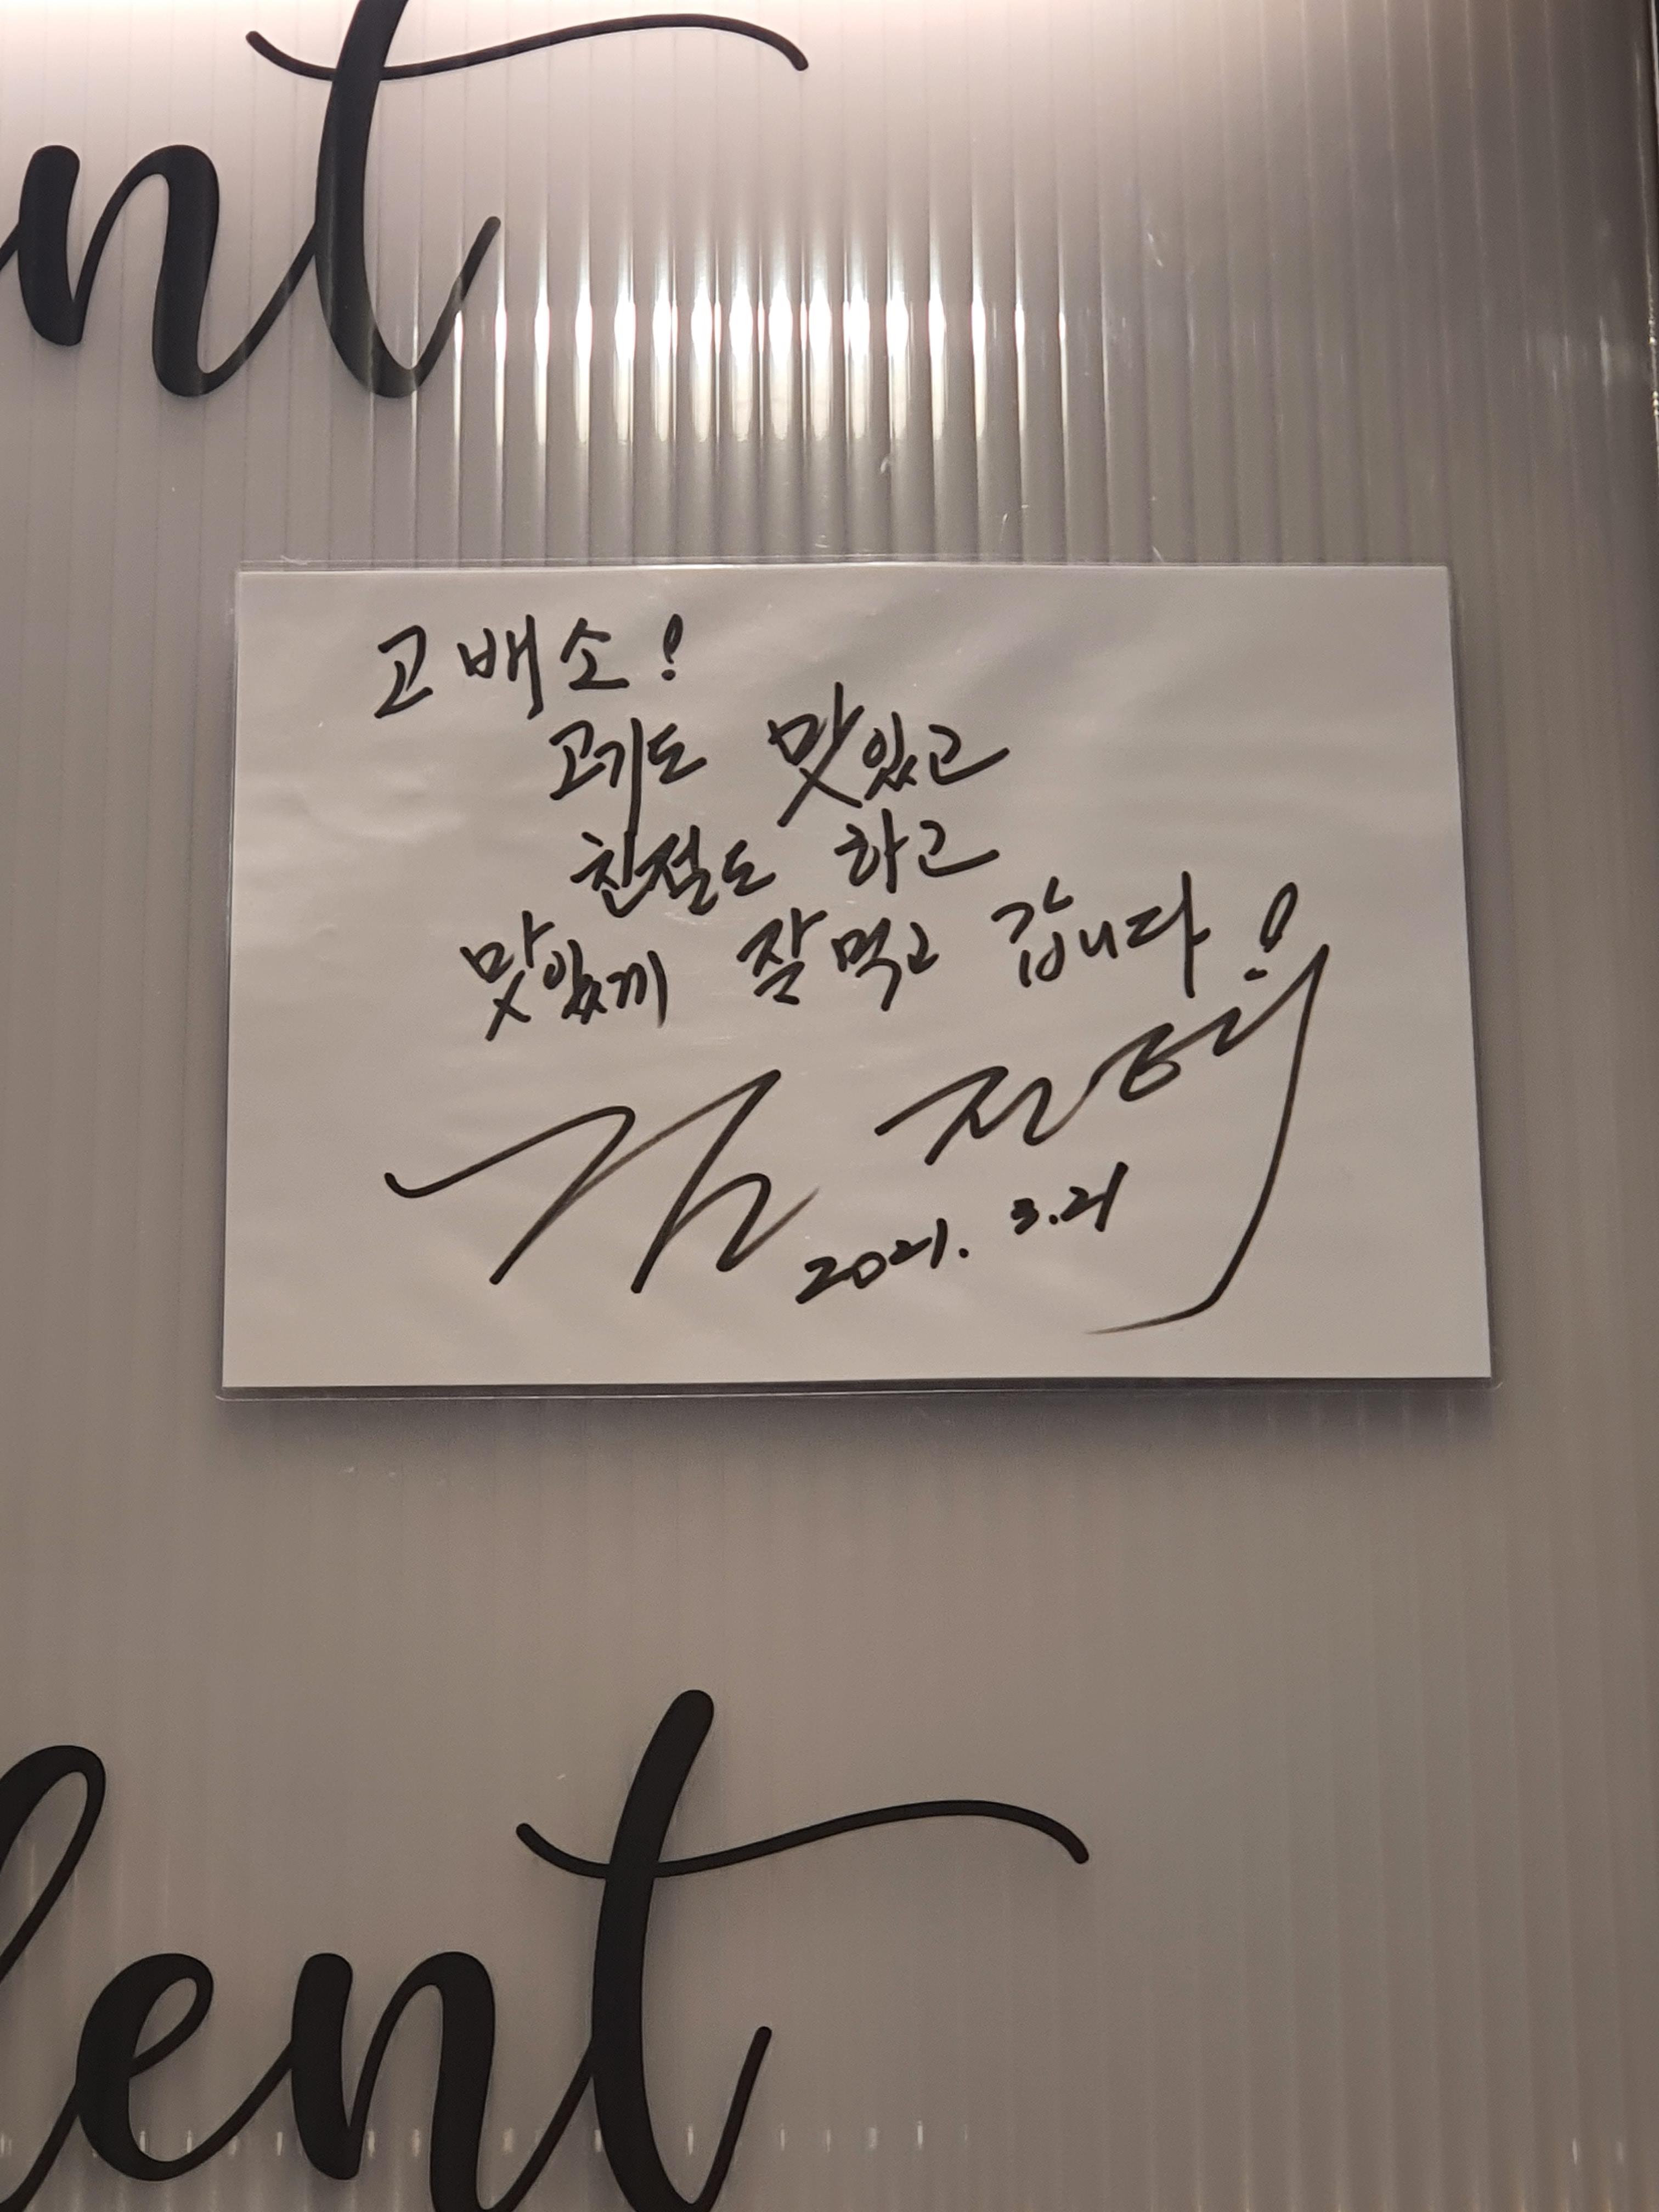 nt
고배소!
고기도 맛있고
친절도 하고
맛있께 잘먹고 갑니다!
김
2021. 3.21
lent